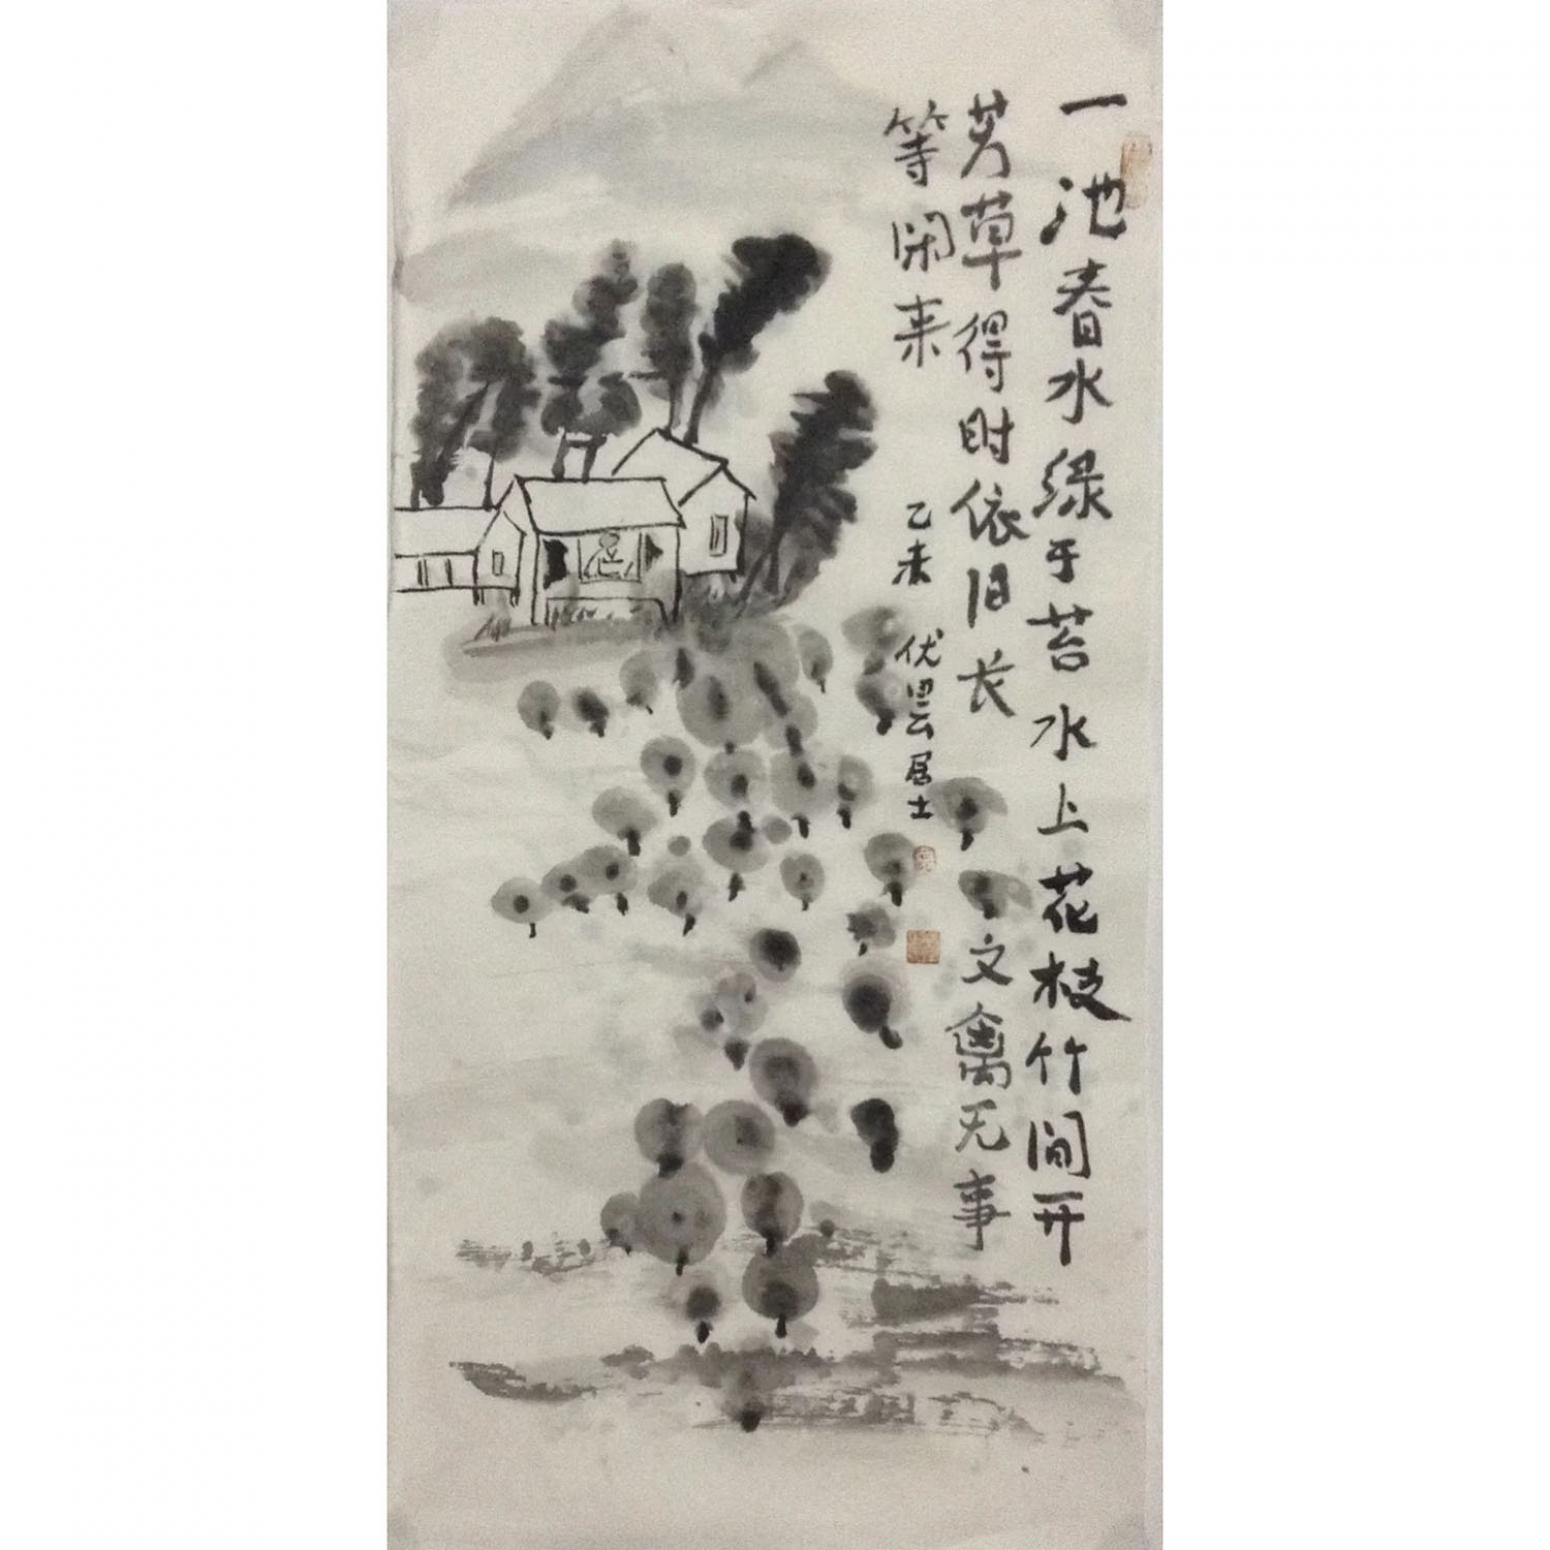 一池春水绿于苔水上花枝竹间开
芳草得时依旧长文禽无事
等闲来
乙未 伏居士